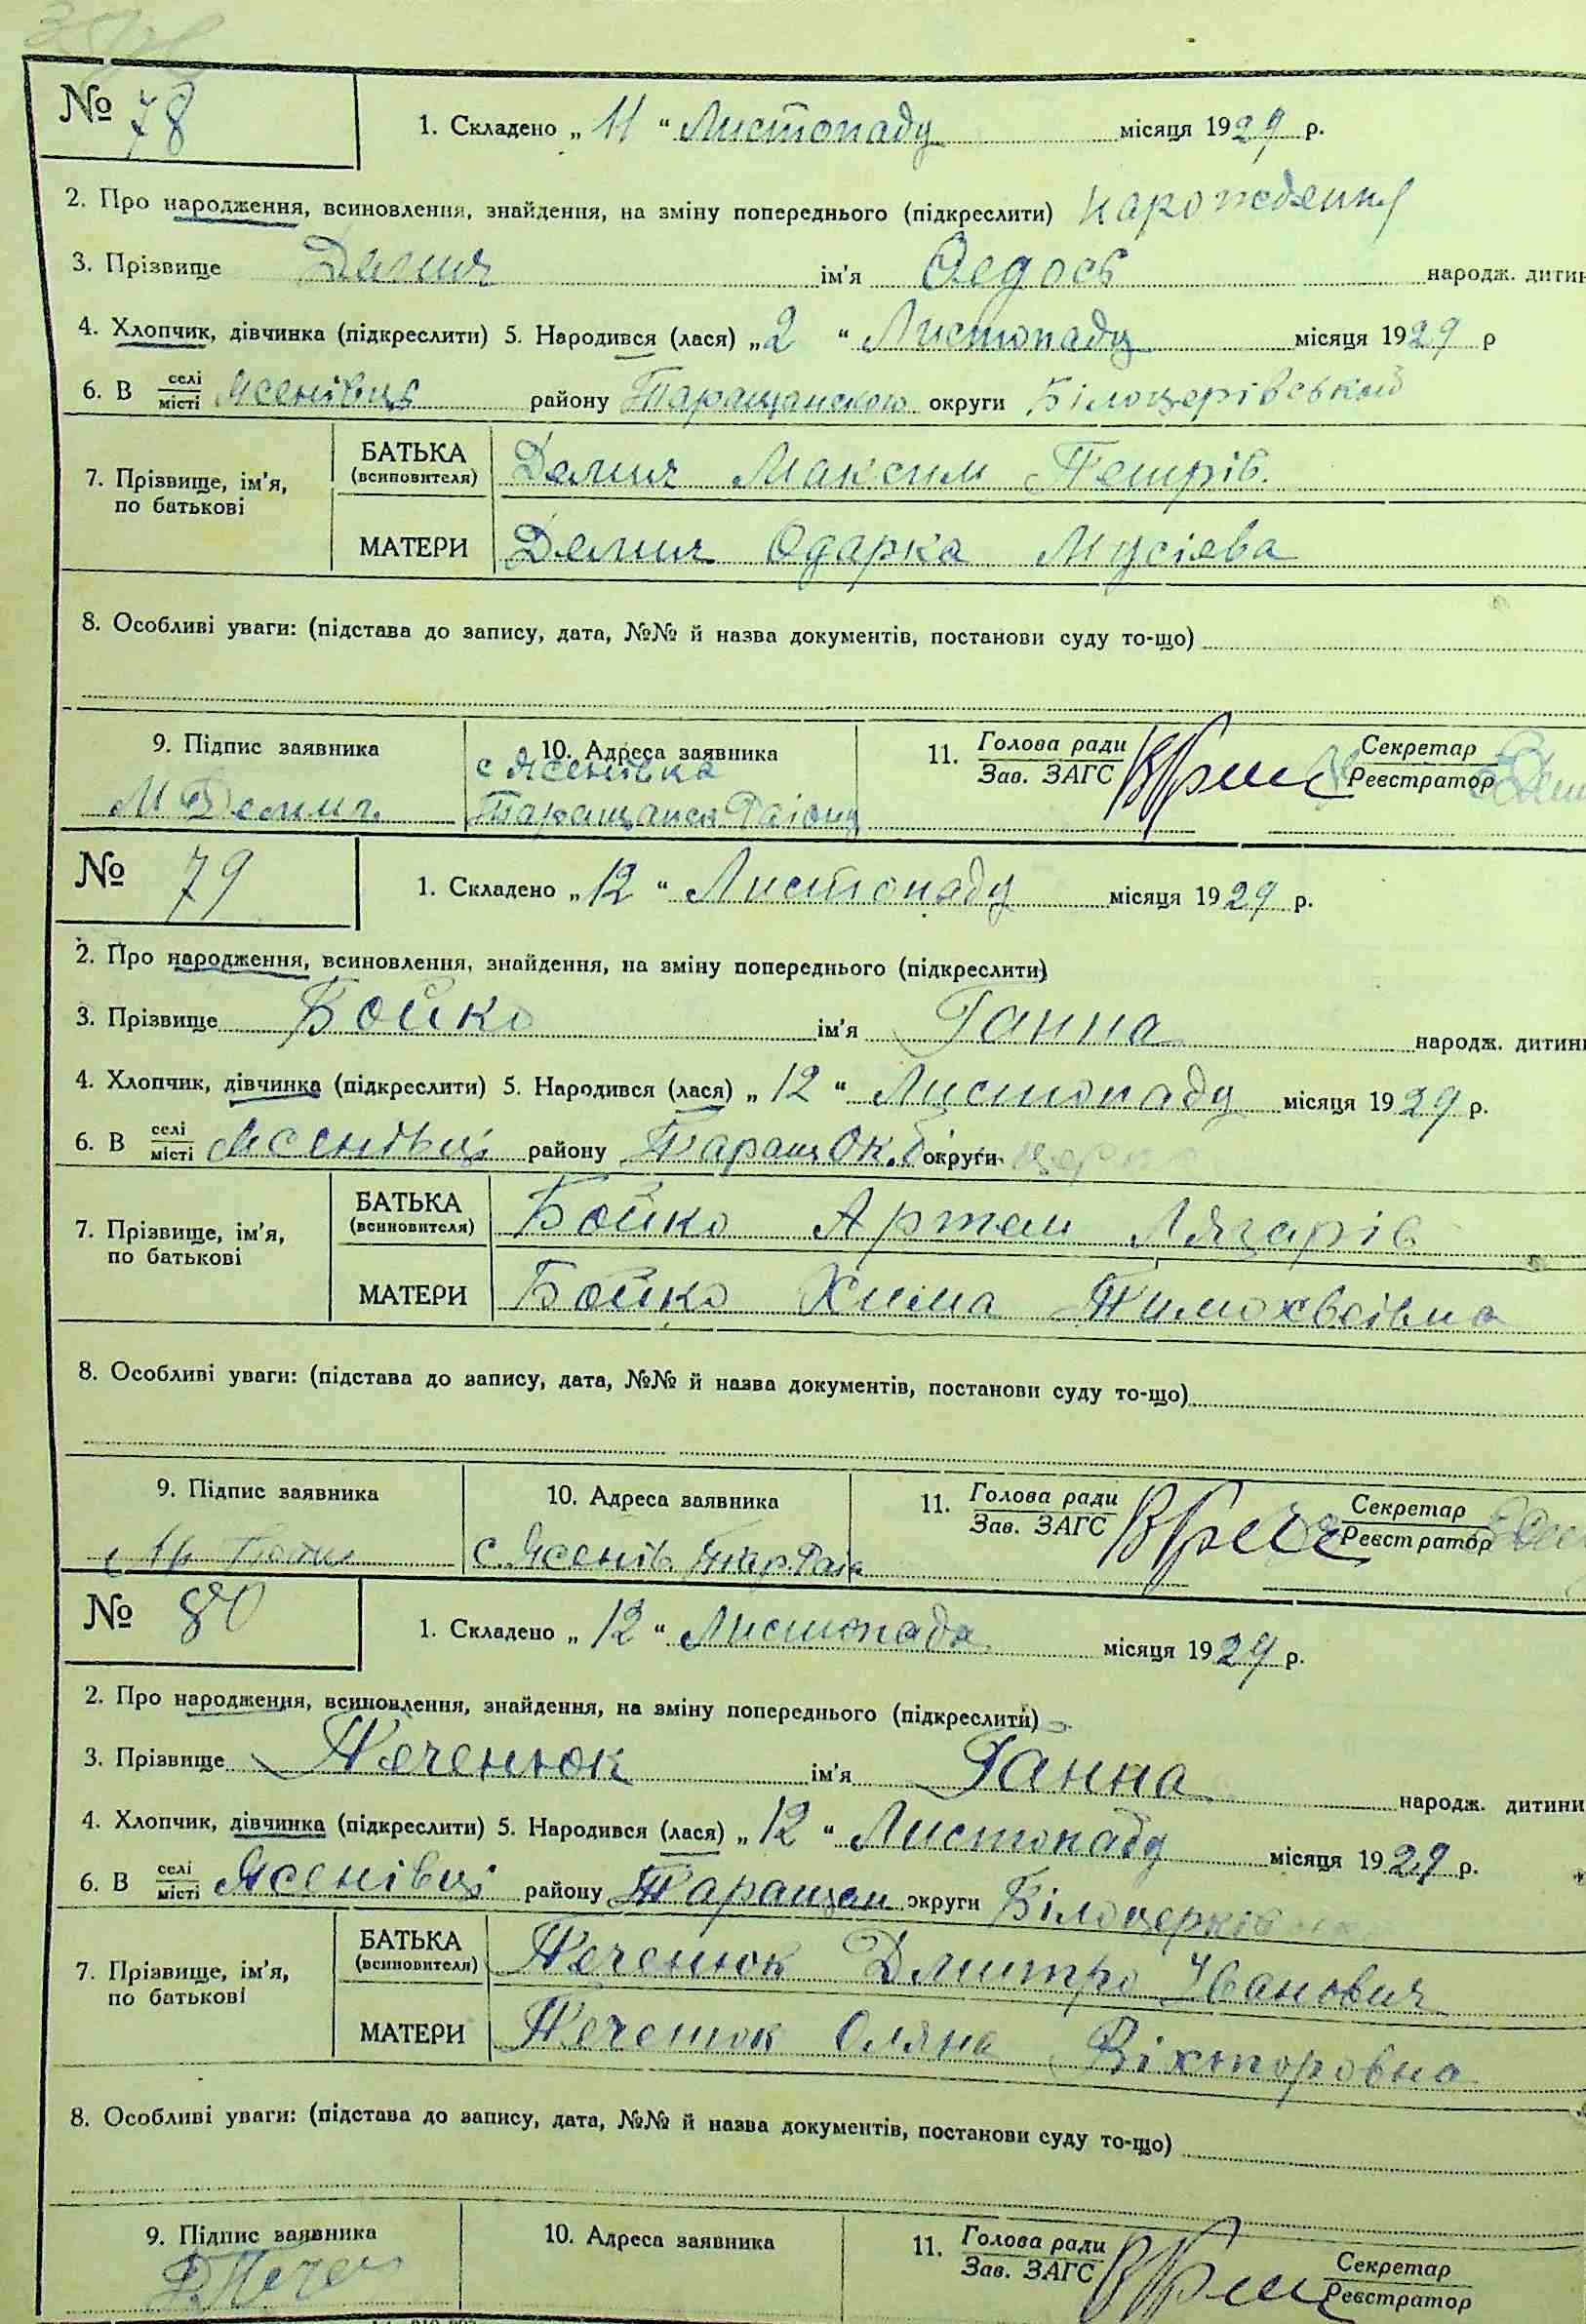 № 78
1. Складено „ 11 “ Листопаду місяця 1929 р.
2. Про народження, всиновлення, знайдення, на зміну попереднього (підкреслити) народження
3. Прізвище Демич ім'я Федось народж. дитин
4. Хлопчик, дівчинка (підкреслити) 5. Народився (лася) „ 2 “ Листопаду місяця 1929 р
6. В селі місті Ясенівці району Таращанского округи Білоцерківський
7. Прізвище, ім'я, по батькові
БАТЬКА (всиновителя) Демич Максим Петрів.
МАТЕРИ Демич Одарка Мусієва
8. Особливі уваги: (підстава до запису, дата, №№ й назва документів, постанови суду то-що)
9. Підпис заявника 10. Адреса заявника 11. Голова ради Зав. ЗАГС Секретар Реєстратор
М Демич с Ясенівка
Таращанск Району
№ 79
1. Складено „ 12 “ Листопаду місяця 1929 р.
2. Про народження, всиновлення, знайдення, на зміну попереднього (підкреслити)
3. Прізвище Бойко ім'я Ганна народж. дитини
4. Хлопчик, дівчинка (підкреслити) 5. Народився (лася) „ 12 “ Листопаду місяця 1929 р.
6. В селі місті Ясенівці району Таращ Ок. округи
7. Прізвище, ім'я, по батькові
БАТЬКА (всиновителя) Бойко Артем Лазарів
МАТЕРИ Бойко Хима Тимохвеівна
8. Особливі уваги: (підстава до запису, дата, №№ й назва документів, постанови суду то-що)
9. Підпис заявника 10. Адреса заявника 11. Голова ради Зав. ЗАГС Секретар Реєстратор
с. Ясенів. Тар. Рай
№ 80
1. Складено „ 12 “ Листопада місяця 1929 р.
2. Про народження, всиновлення, знайдення, на зміну попереднього (підкреслити)
3. Прізвище Печенюк ім'я Ганна народж. дитини
4. Хлопчик, дівчинка (підкреслити) 5. Народився (лася) „ 12 “ Листопаду місяця 1929 р.
6. В селі місті Ясенівці району Таращан округи Білоцерків
7. Прізвище, ім'я, по батькові
БАТЬКА (всиновителя) Печенюк Дмитро Іванович
МАТЕРИ Печенюк Оляна Віхторовна
8. Особливі уваги: (підстава до запису, дата, №№ й назва документів, постанови суду то-що)
9. Підпис заявника 10. Адреса заявника 11. Голова ради Зав. ЗАГС Секретар Реєстратор
Д Печен